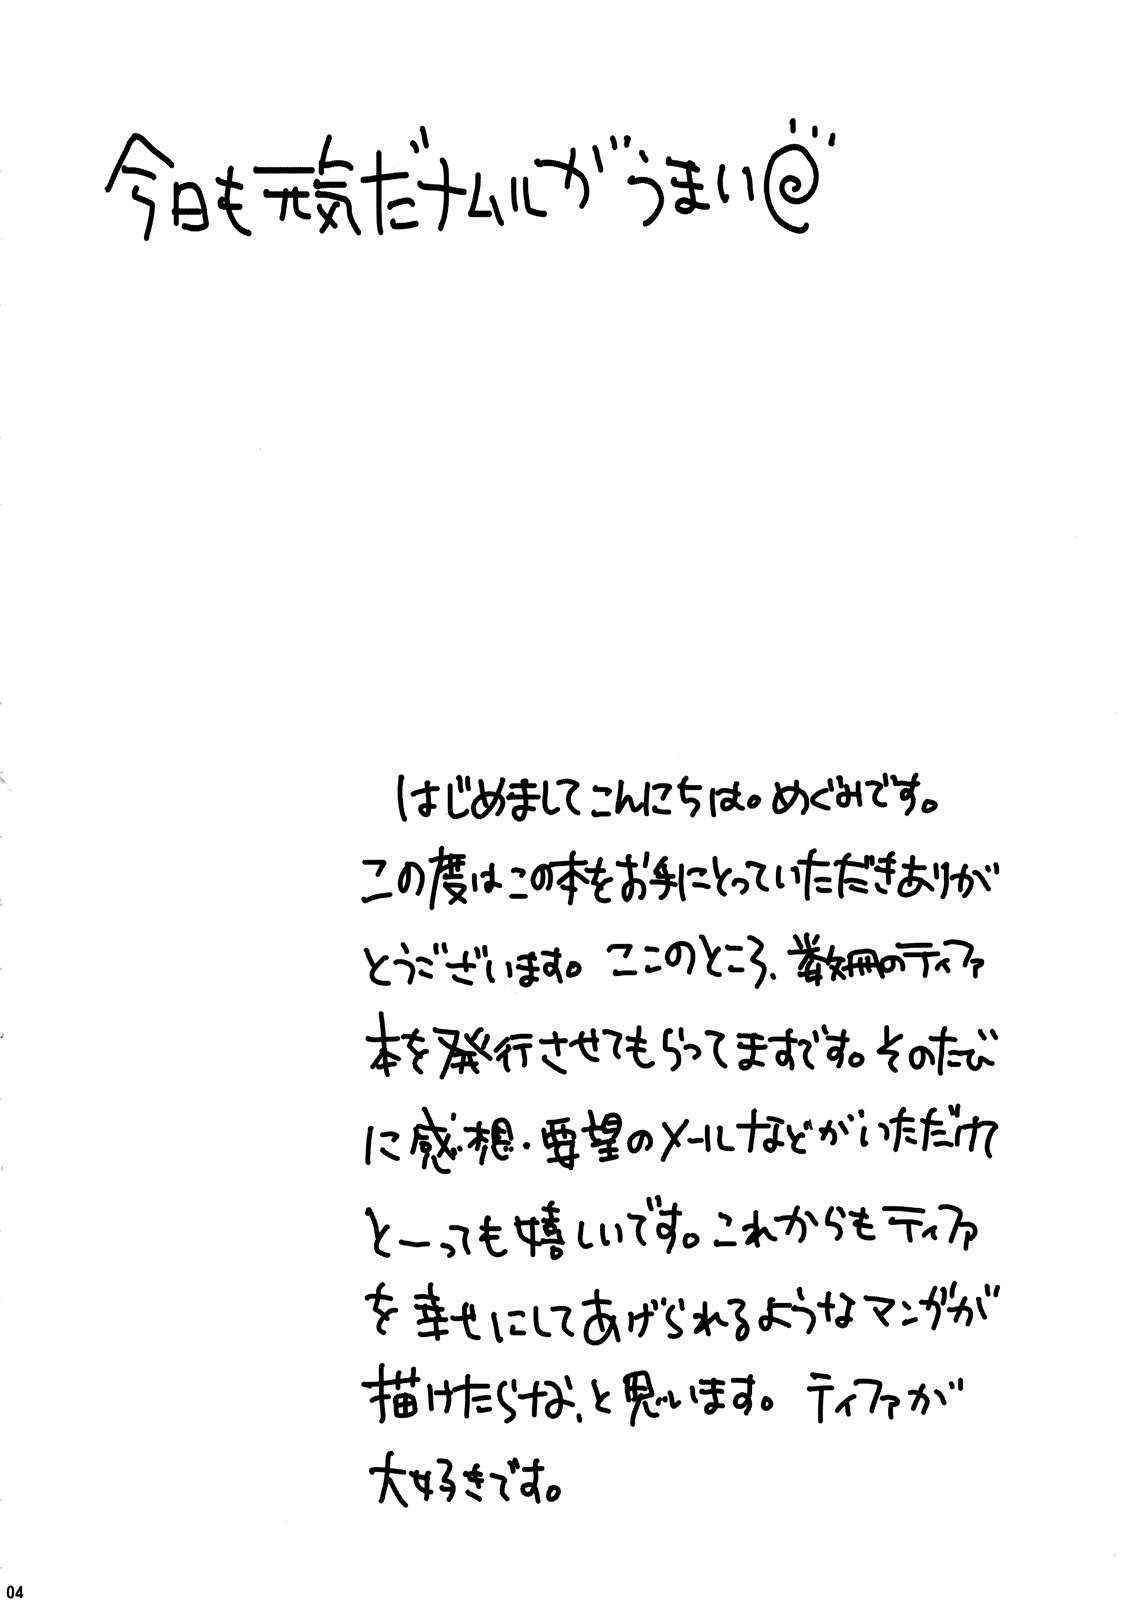 今日も元気だナムルがうまい@
はじめましてこんにちは。めぐみです。
この度はこの本をお手にとっていただきありが
とうございます。ここのところ、数冊のティファ
本を発行させてもらってますです。そのたび
に感想・要望のメールなどがいただけて
と－っても嬉しいです。これからもティファ
を幸せにしてあげられるようなマンガが
描けたらなぁ、と思います。ティファが
大好きです。
04